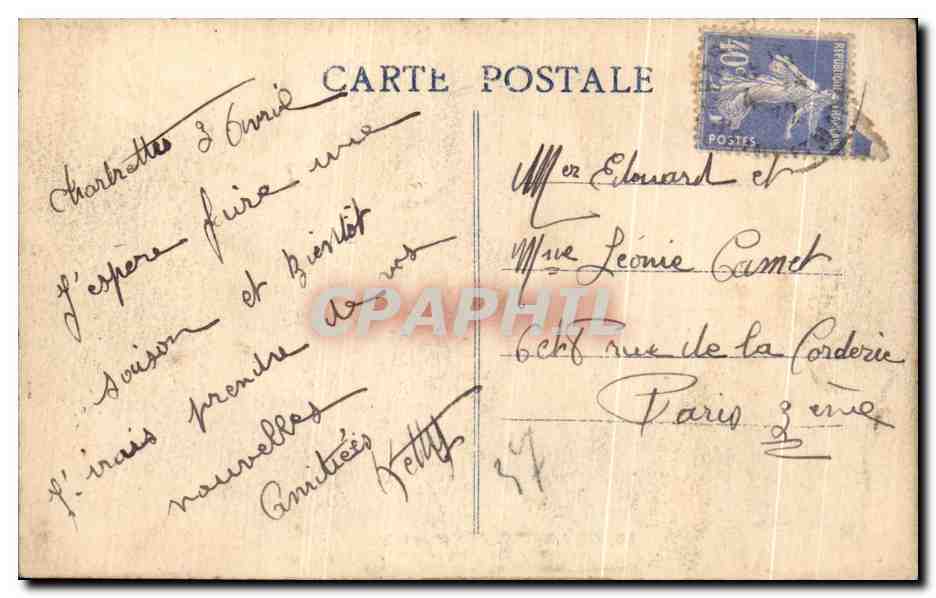 CARTE POSTALE
40c
REPUBLIQUE FRANCAISE
POSTES
Chartrettes 3 Avril
J'espère faire une
saison et Bientôt
J'irais prendre de vos
nouvelles
Amitiées
Mer Edouard et
Mme Léonie Camet
6 et 8 rue de la Corderie
Paris 3ème
37
CPAPHIL